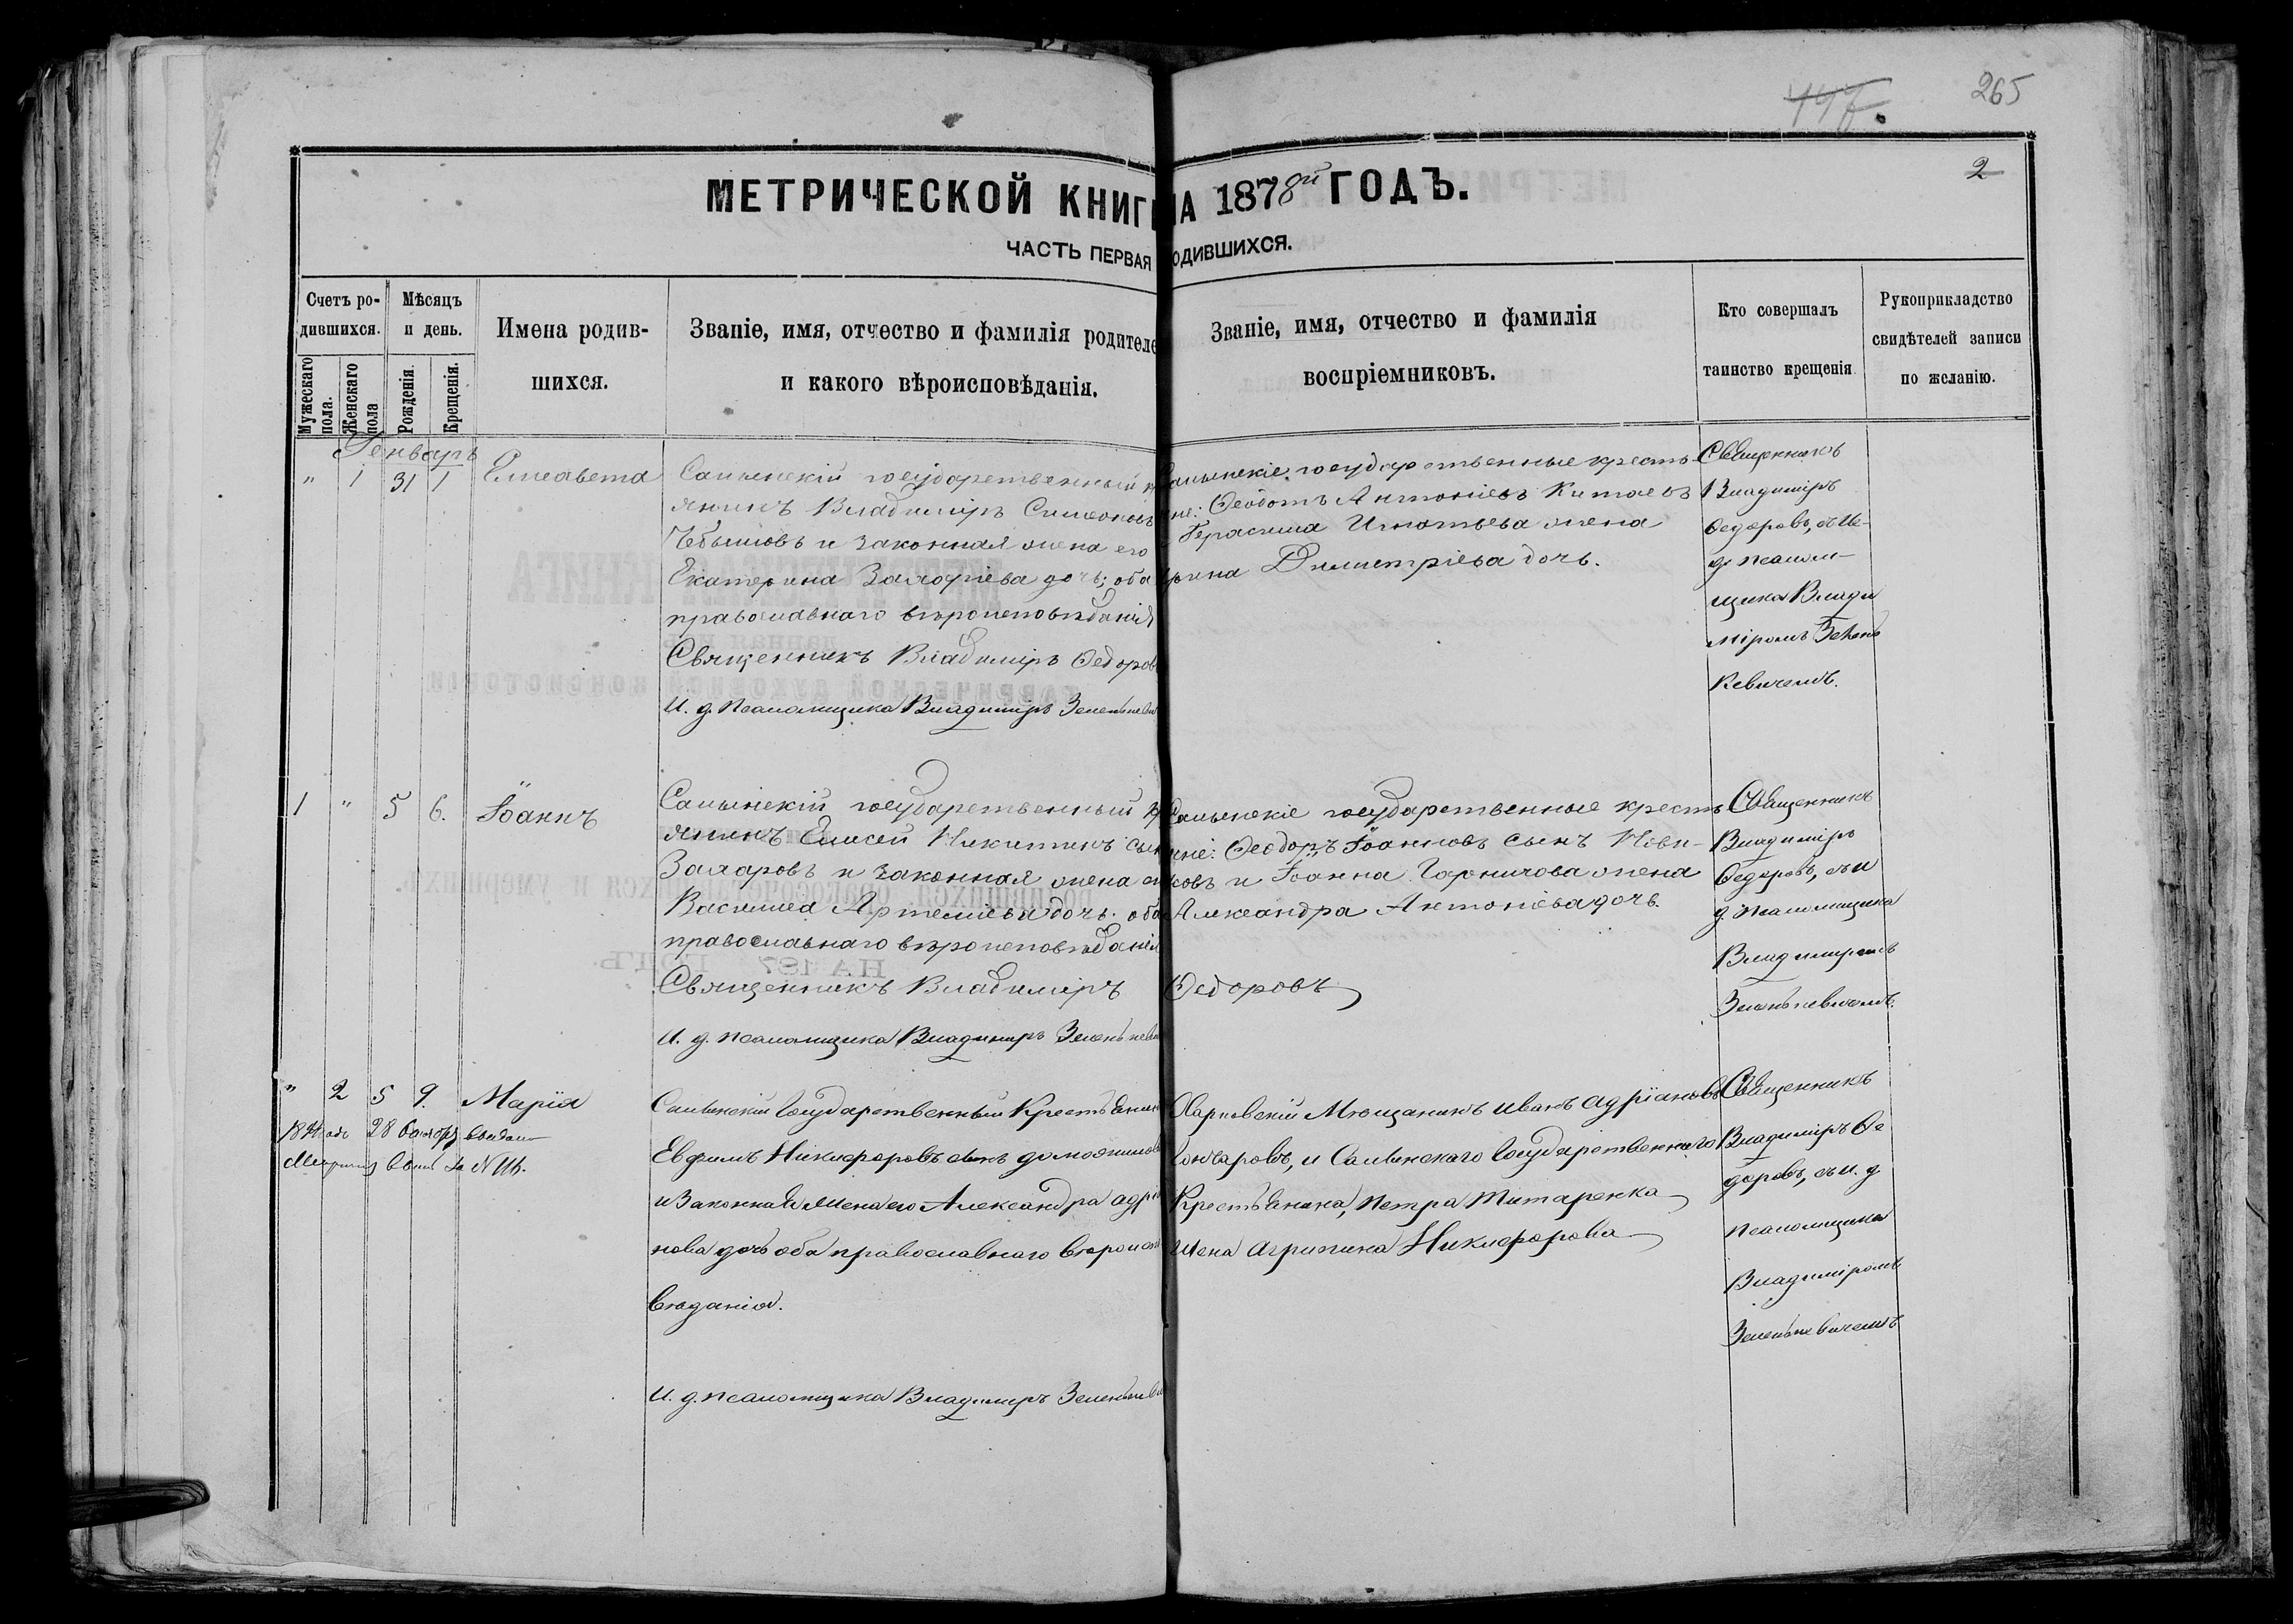 265
2
МЕТРИЧЕСКОЙ КНИГ НА 1878ой ГОДЪ.
ЧАСТЬ ПЕРВАЯ ОДИВШИХСЯ.
Счетъ ро-
дившихся.
Мужескаго пола.
Женскаго пола
Мѣсяцъ
и день.
Рожденія.
Крещенія.
Имена родив-
шихся.
Званіе, имя, отчество и фамилія родителе
и какого вѣроисповѣданія.
Званіе, имя, отчество и фамилія
воспріемниковъ.
Кто совершалъ
таинство крещенія
Рукоприкладство
свидѣтелей записи
по желанію.
Генварь
" 1 31 1
Елисавета
государственный
янинъ Владиміръ Симеоновъ
и законная жена его
Екатерина Захаріева дочь; оба
православнаго вѣроисповѣданія
Священникъ Владиміръ Ѳедоров
И. д. псаломщика Владимиръ
государственные кресть-
не: Ѳеодотъ Антоніевъ Китаевъ
Герасима Игнатьева жена
рина Димитріева дочь.
Священникъ
Владиміръ
Ѳедоровъ, съ И-
д. псалом-
щика Влади
міромъ Зелень
кевичемъ.
1 " 5 6.
Іоаннъ
государственный кр
янинъ Елисей Никитинъ сын
Захаровъ и законная жена ег
Василиса Артеміева дочь; оба
православнаго вѣроисповѣданія
Священникъ Владиміръ Ѳедоровъ
И. д. псаломщика Владимиръ
государственные кресть
яне: Ѳеодоръ Іоанновъ сынъ Нови-
ковъ и Іоанна жена
Александра Антоніева дочь.
Священникъ
Владиміръ
Ѳедоровъ, съ и
д. псаломщика
Владимиромъ
Зеленькевичемъ.
" 2 5 9.
Марія
28 выдано
за №
Государственный Крестьянин
Евфимъ Никифоровъ сынъ
и Законная Жена его Александра Адрі
нова дочь оба православнаго вѣроиспо
вѣданія.
И. д. псаломщика Владимиръ
Харьковскій Мѣщанинъ Иванъ Адріановъ
Гончаровъ, и Государственнаго
Крестьянина, Петра Титаренка
Жена Агрипина Никифорова
Священникъ
Владиміръ Ѳе
доровъ, съ и. д
псаломщика
Владиміромъ
Зеленькевичемъ